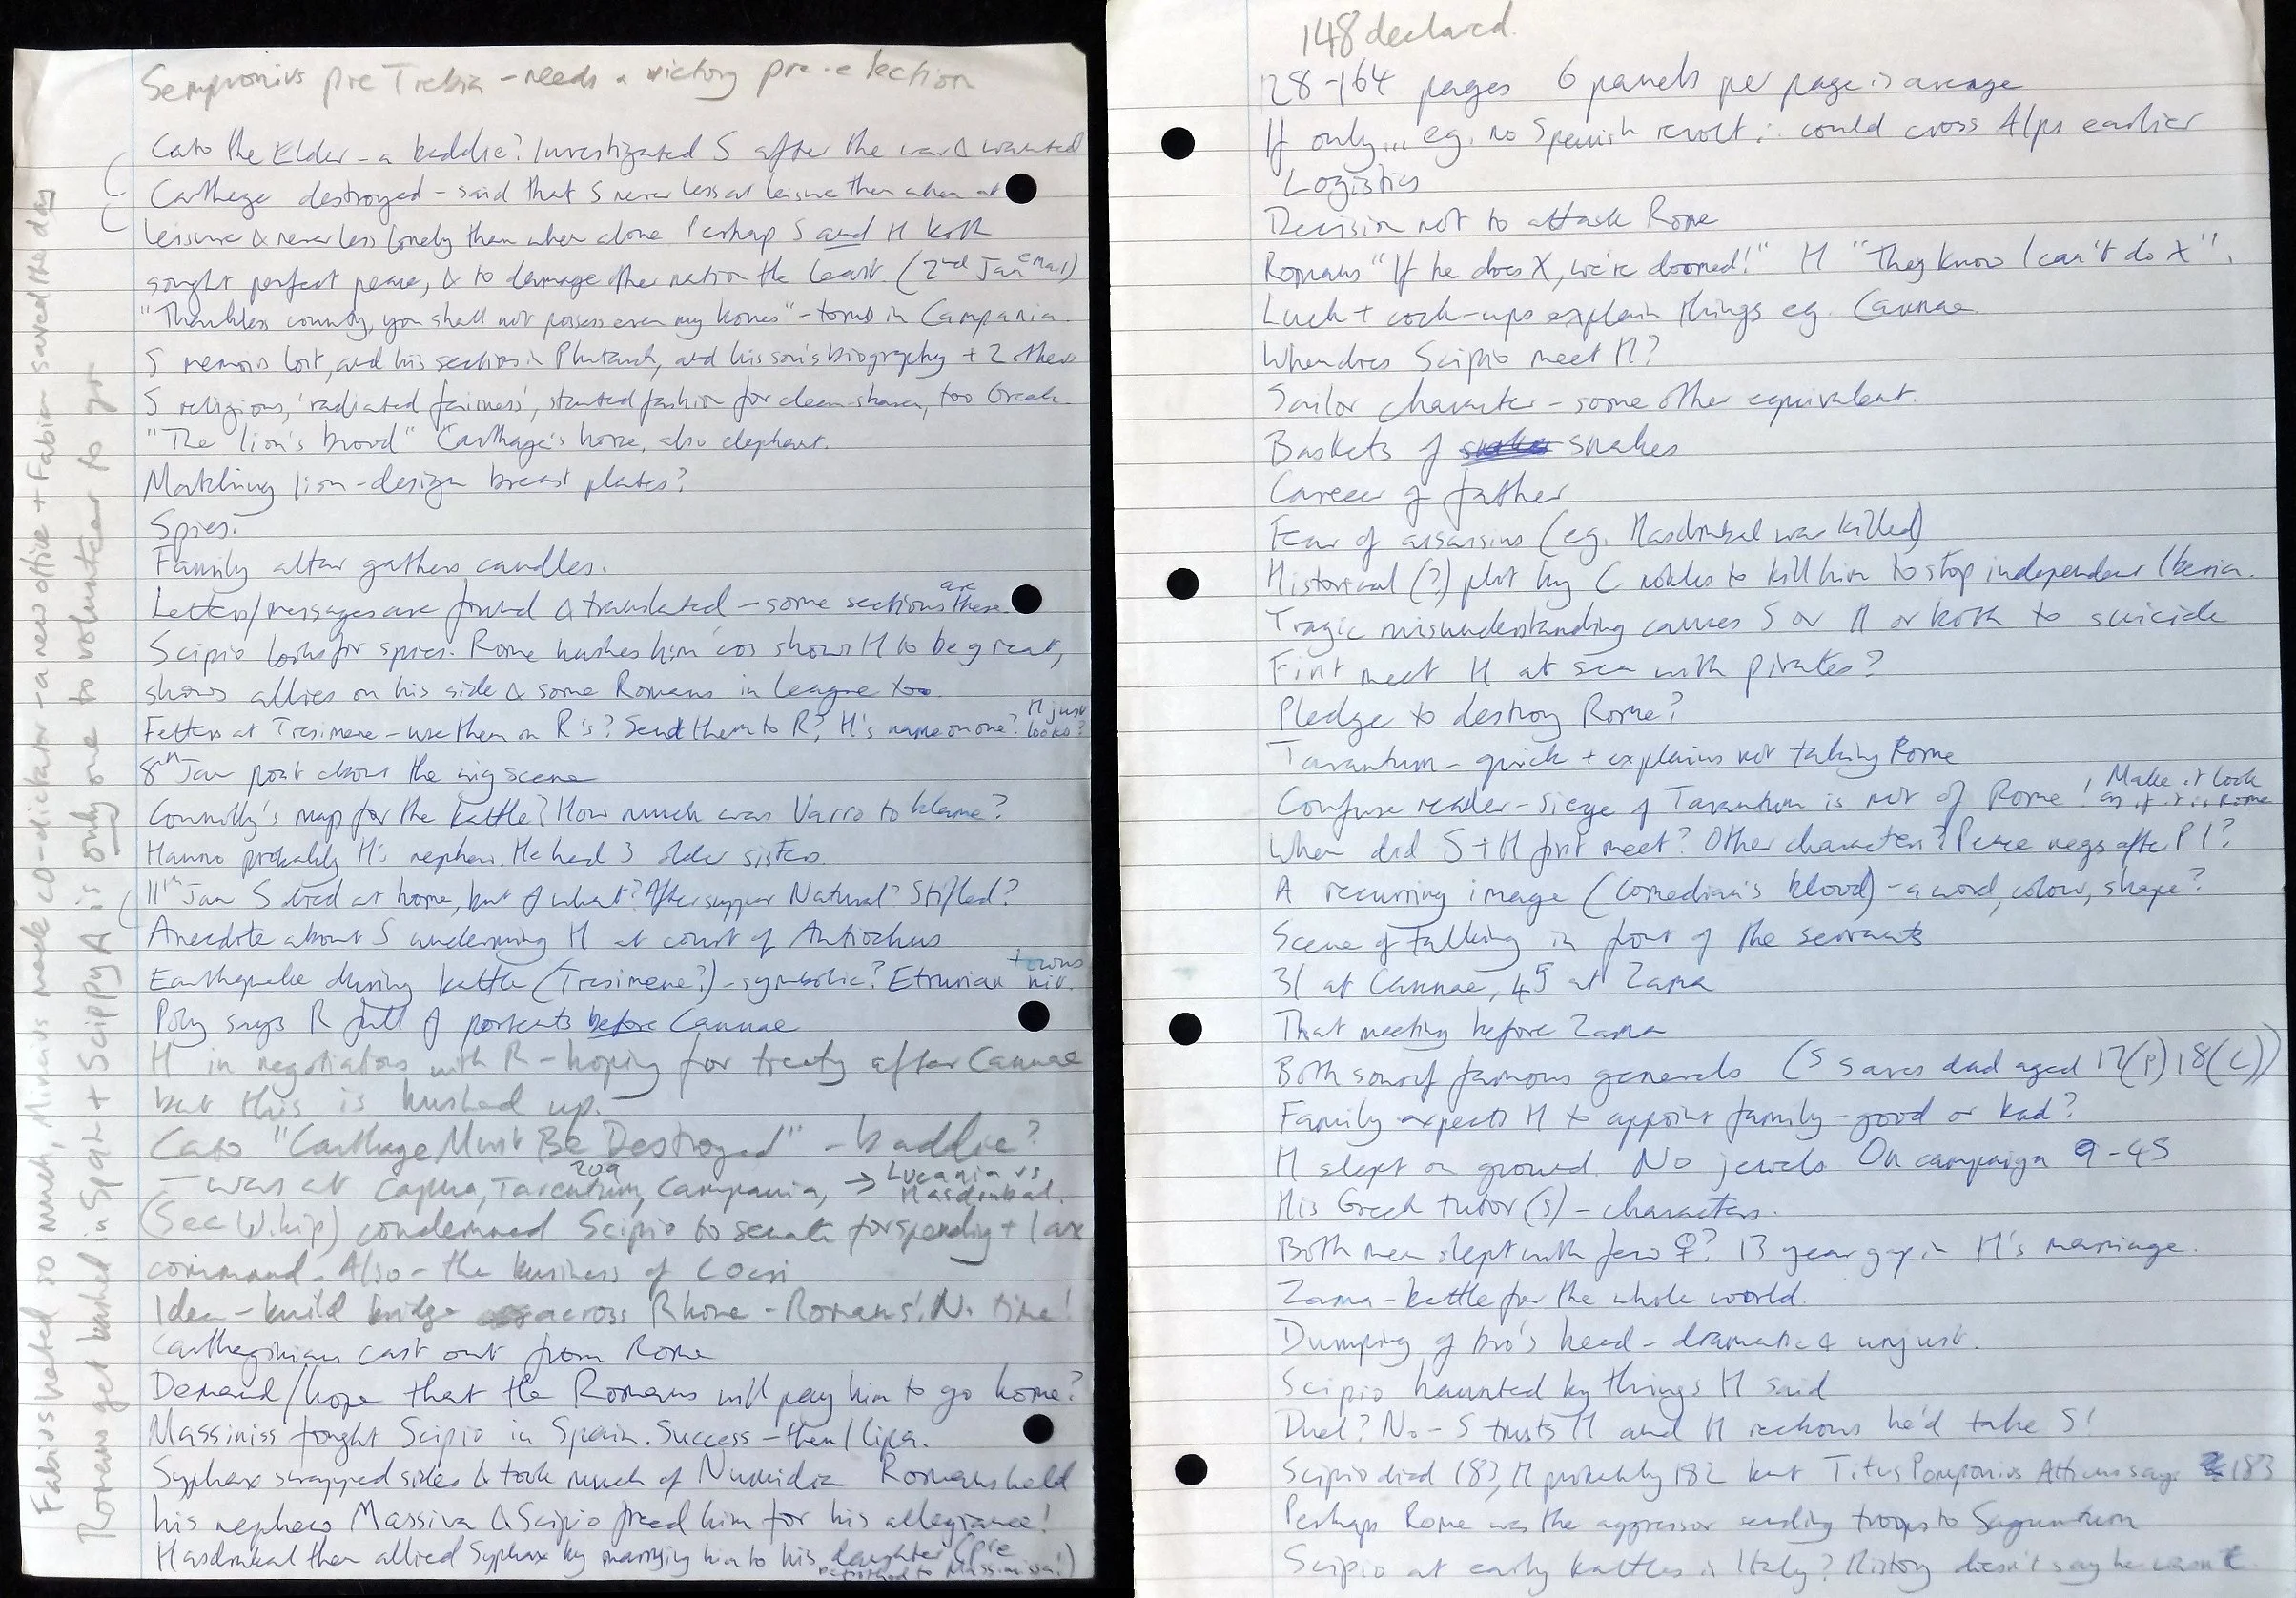 Sempronius pre Trebia - needs a victory pre-election
Cato the Elder - a baddie? Investigated S after the war & wanted
Carthage destroyed - said that S never less at leisure then when at
leisure & never less lonely than when alone Perhap S and H both
sought perfect peace, & to damage other nation the least. (2nd Jan email)
"Thankless country, you shall not possess even my bones" - tomb in Campania.
S memoirs lost, and his section in Plutarch, and his son's biography + 2 others
S religious, 'radiated fairness', started fashion for clean-shaven, too Greek.
"The lion's brood" Carthage's horse, also elephant.
Matching lion-design breast plates?
Spies.
Family altar gathers candles.
Letters/messages are found & translated - some sections are there.
Scipio looks for spies. Rome hushes him 'cos shows H to be great,
shows allies on his side & some Romans in league too.
Fetters at Trasimene - use them on R's? Send them to R? H's name on one? H just looks?
8th Jan post about the wig scene
Connolly's map for the battle? How much was Varro to blame?
Hanno probably H's nephew. He had 3 older sisters.
11th Jan S died at home, but of what? After supper Natural? Stifled?
Anecdote about S undermining H at court of Antiochus
Earthquake during battle (Trasimene?) - symbolic? Etrurian towns
Poly says R full of portents before Cannae
H in negotiations with R - hoping for treaty after Cannae
but this is hushed up.
Cato "Carthage Must Be Destroyed" - baddie?
- was at Capua, Tarentum 209, Campania, → Lucania vs Hasdrubal.
(See Wikip) condemned Scipio to senate for spending + lax
command. Also - the business of Locri
Idea - build bridge across Rhone - Romans! No time!
Carthaginians cast out from Rome
Demand/hope that the Romans will pay him to go home?
Massiniss fought Scipio in Spain. Success - then Ilipa.
Syphax swapped sides & took much of Numidia Romans held
his nephew Massiva & Scipio freed him for his allegiance!
Hasdrubal then allied Syphax by marrying him to his daughter (pre betrothed to Massinissa!)
Fabius hated so much, Minucius made co-dictator - a new office + Fabian saved the day
Romans get bashed in Spain + Scippy A is only one to volunteer to go
148 declared.
128-164 pages 6 panels per page is average
If only... eg. no Spanish revolt ∴ could cross Alps earlier
Logistics
Decision not to attack Rome
Romans "If he does X, we're doomed!" H "They know I can't do X".
Luck + cock-ups explain things eg. Cannae.
When does Scipio meet H?
Sailor character - some other equivalent.
Baskets of snakes
Career of father
Fear of assassins (eg. Hasdrubal was killed)
Historical (?) plot by C nobles to kill him to stop independent Iberia.
Tragic misunderstanding causes S or H or both to suicide
First meet H at sea with pirates?
Pledge to destroy Rome?
Tarantum - quick + explains not taking Rome
Confuse reader - siege of Tarantum is not of Rome! Make it look as if it is Rome
When did S + H first meet? Other characters? Peace negs after P1?
A recurring image (Comedian's blood) - a word, colour, shape?
Scene of talking in front of the servants
31 at Cannae, 45 at Zama
That meeting before Zama
Both sons of famous generals (S saves dad aged 17(P) 18(L))
Family expects H to appoint family - good or bad?
H slept on ground. No jewels On campaign 9-45
His Greek tutor(s) - characters.
Both men slept with few ♀? 13 year gap in H's marriage.
Zama - battle for the whole world.
Dumping of bro's head - dramatic & unjust.
Scipio haunted by things H said
Duel? No - S trusts H and H reckons he'd take S!
Scipio died 183, H probably 182 but Titus Pomponius Atticus says 183
Perhaps Rome was the aggressor sending troops to Saguntum
Scipio at early battles in Italy? History doesn't say he wasn't